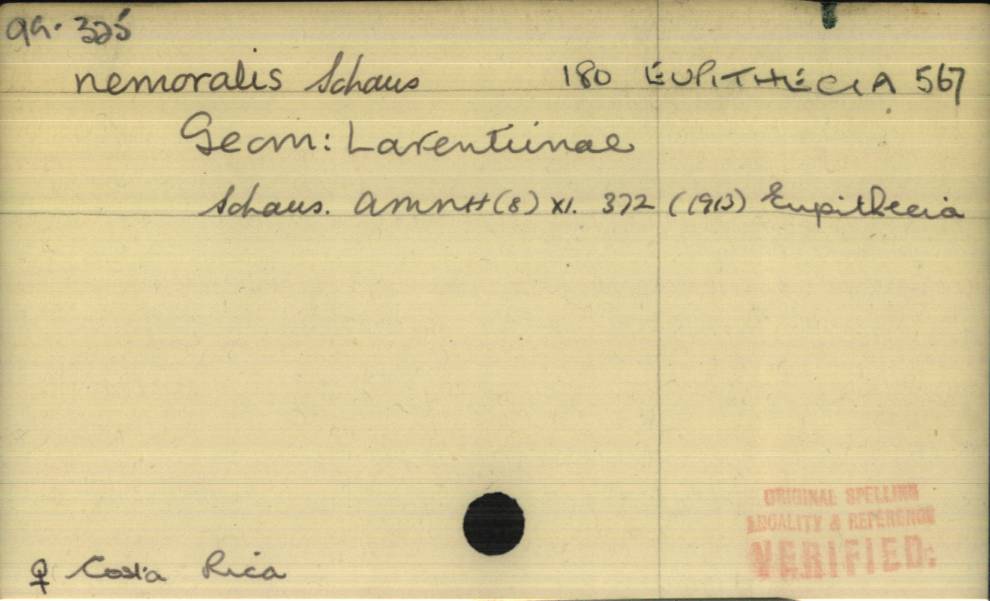 99. 325
nemoralis Schaus 180 EUPITHECIA 567
Geom: Larentiinae
Schaus. AMNH (8) XI. 372 (1913) Eupithecia
ORIGINAL SPELLING
LOCALITY & REFERENCE
VERIFIED:
♀ Costa Rica